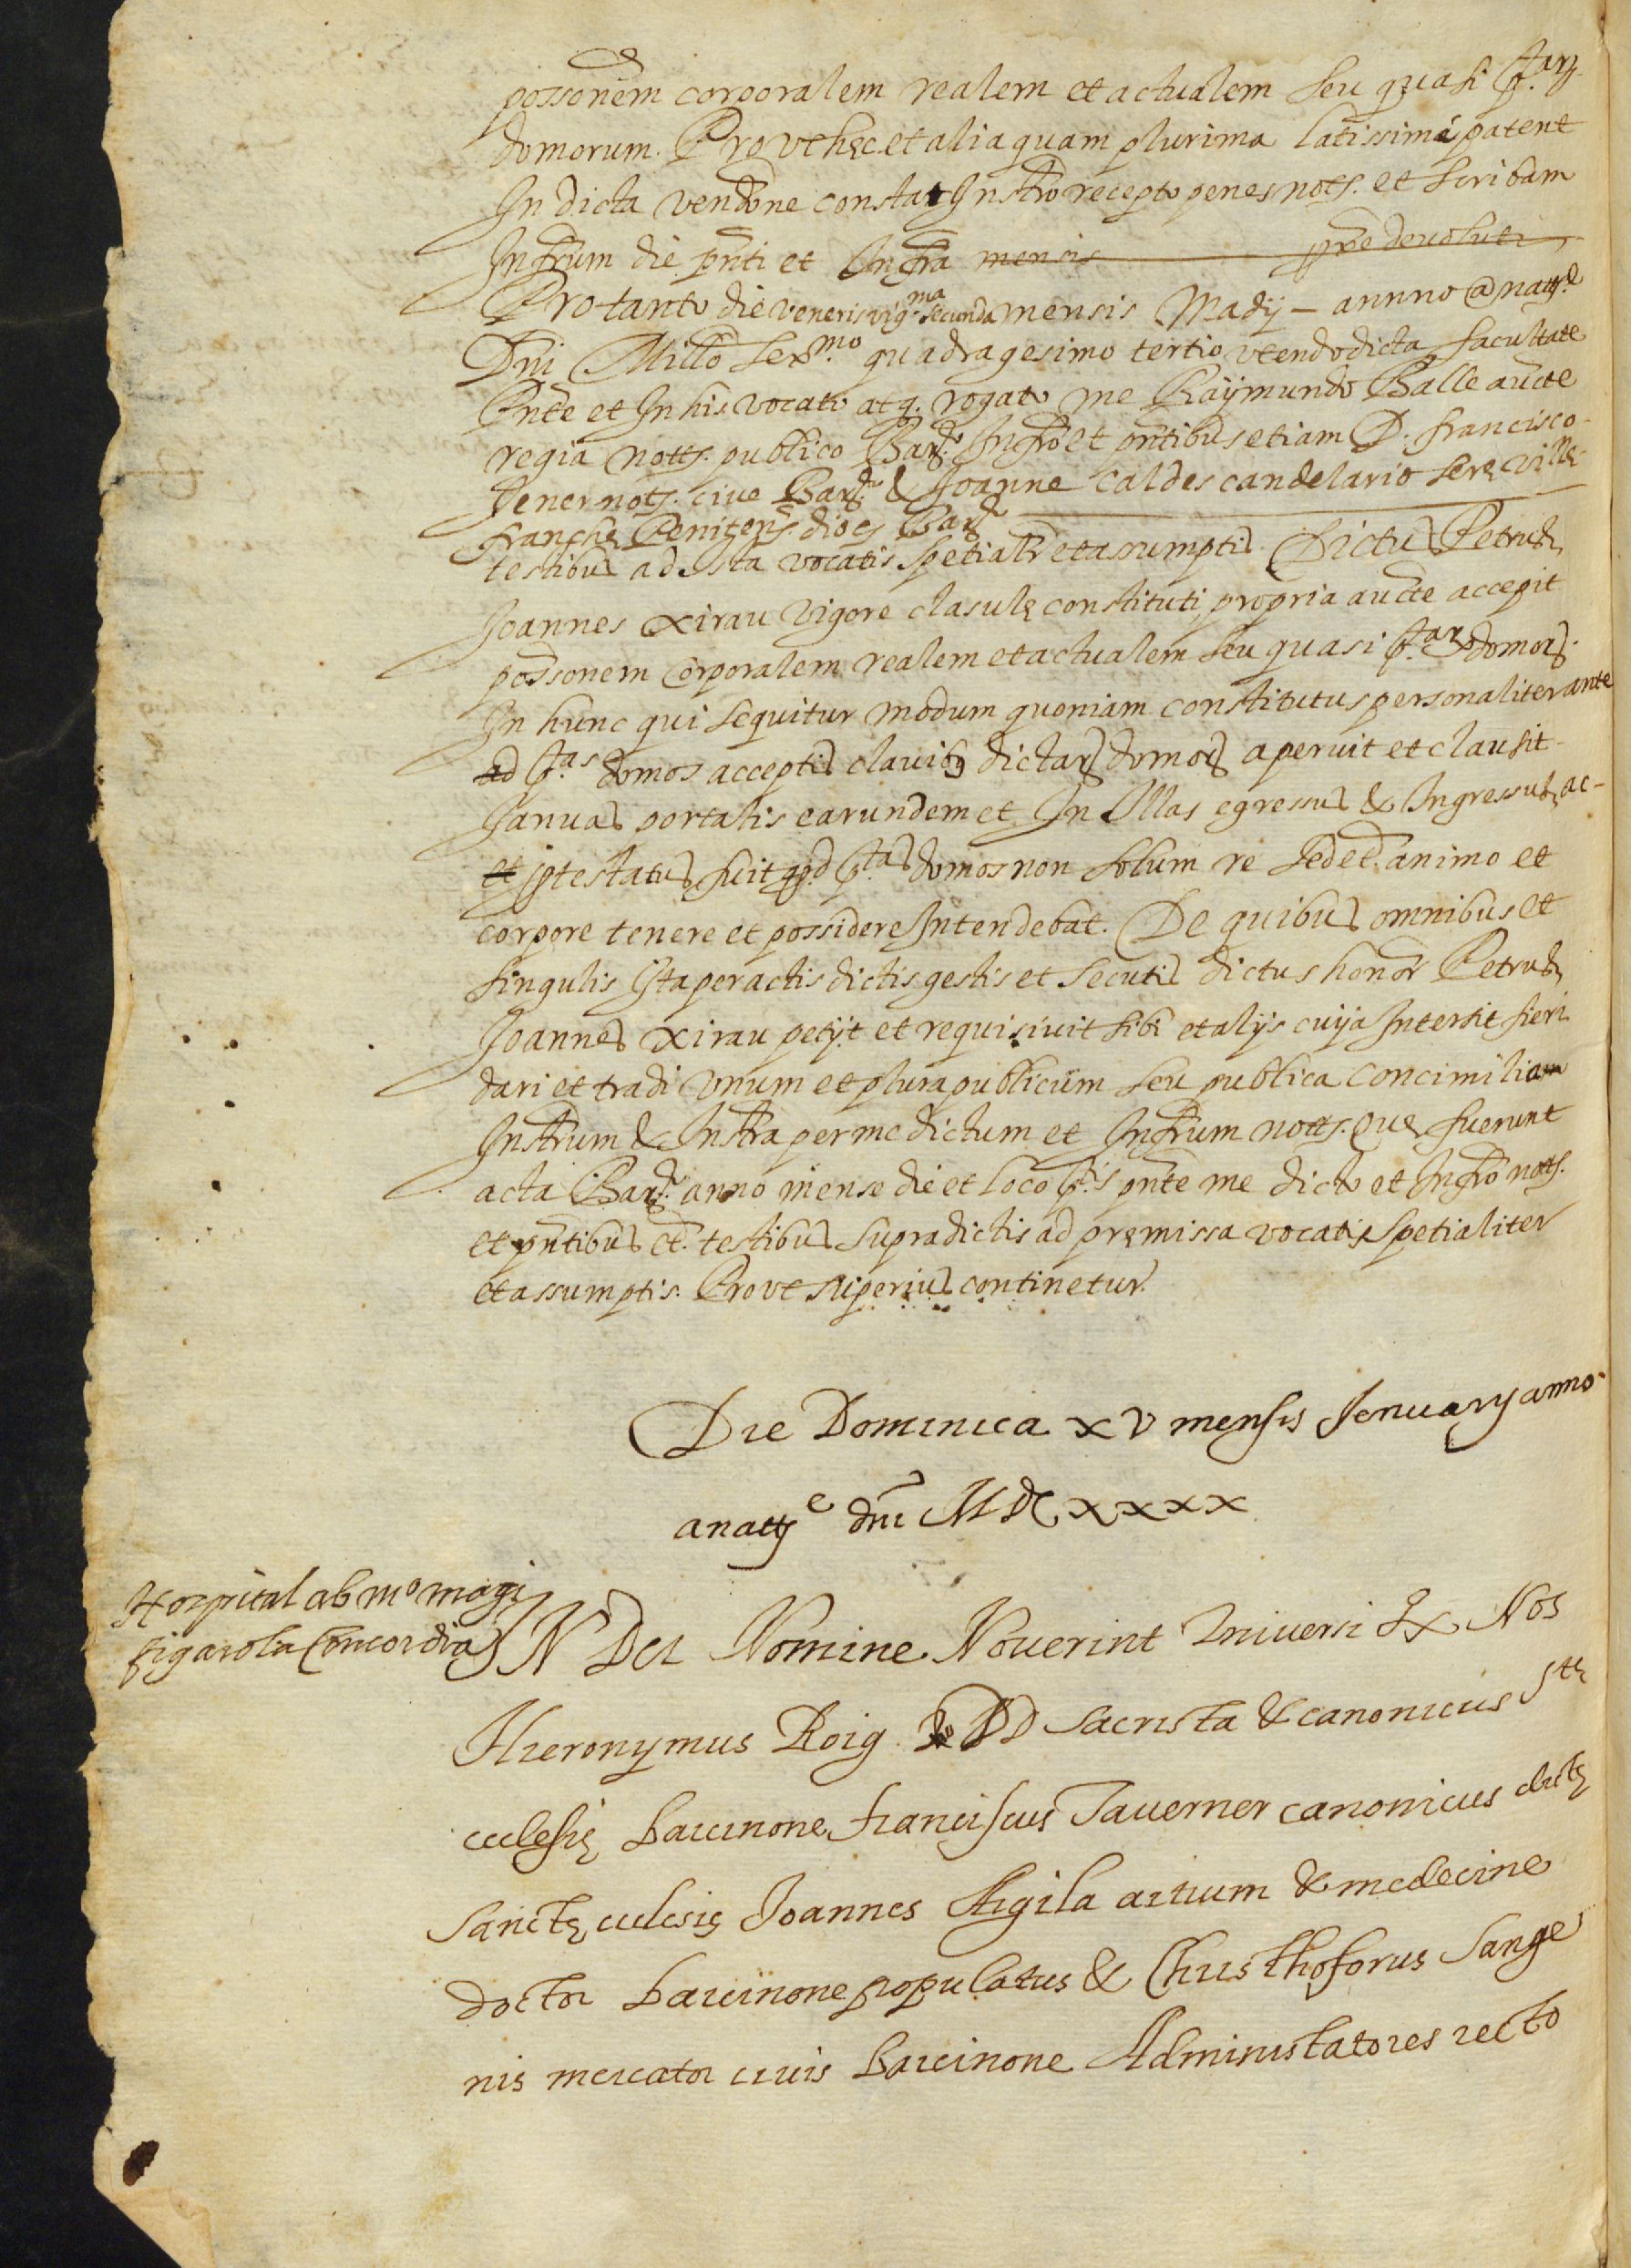 possonem corporalem realem et actualem seu quasi p.tarum
domorum. Prout hęc et alia quam plurima latissimé patent
In dicta vendōne constat Instrō recepto penes nots. et scribam
Infrūm die pn̄ti et Infrā mensis pn̄e devoluti
Pro tanto die veneris vig.ma secunda mensis Madij – annno @ natte.
Dn̄i Millō sexmo. quadragesimo tertio utendo dicta facultate
Pn̄te et In his vocato atq. rogato me Raÿmundo Balle aucte
regia notts. publico Barne. Infrō et pn̄tibus etiam D. Francisco
Jener nots. cive Barne. & Joanne Caldes candelario serę villę
franchę Penitens. dioes Barne
testibus ad Ista vocatis spetialr̄ et assumptis. Dictus Petrus
Joannes Xirau vigore clasulę constituti, propria aucte accepit
possonem corporalem realem et actualem seu quasi p.tarum domorum.
In hunc qui sequitur modum quoniam constitutus personaliter ante
ad p.tas domos acceptis clavibus dictarum domorum aperuit et clausit
Januas portalis earundem et In Illas egressus & Ingressus, ac
et protestatus fuit quod p.tas domos non solum re sed et. animo et
corpore tenere et possidere Intendebat. De quibus omnibus et
singulis Ita peractis dictis gestis et secutis dictus honor Petrus
Joannes Xirau petijt et requisivit sibi et alijs cuija Intersit fieri
dari et tradi unum et plura publicum seu publica concimiliam
Instrum & Instra per me dictum et Infrum notts. Quę fuerunt
acta Barne. anno mense die et loco p.tis pn̄te me dicto et Infrō notts.
et pn̄tibus et. testibus supradictis ad pręmissa vocatis spetialiter
et assumptis. Prout superius continetur.
Die Dominica XV mensis Jenuary anno
a natte dn̄i MDCXXXX
Hospital ab mo magi
figarola Concordia
IN Dei Nomine Noverint Universi Qx Nos
Hieronymus Roig UD Sacrista & canonicus Stę
ecclesię Barcinone Franciscus Taverner canonicus dictę
Sanctę eclesię Joannes Argila artium & medecine
doctor Barcinone populatus & Christhoforus Sange
nis mercator civis Barcinone Administatores recto